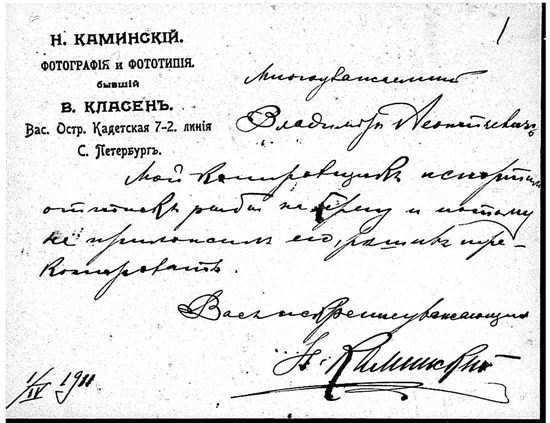 Н. КАМИНСКІЙ.
ФОТОГРАФІЯ и ФОТОТИПІЯ.
бывшій
В. КЛАСЕНЪ.
Вас. Остр. Кадетская 7-2. линія
С. Петербургъ.
1
Многоуважаемый
Владиміръ Леонтьевичъ
Мой копировщикъ испортилъ
оттискъ рыбы на и потому
не приложилъ его, рѣшивъ пере-
копировать.
Васъ искренно уважающій
Н. Каминскій
1/IV 1911